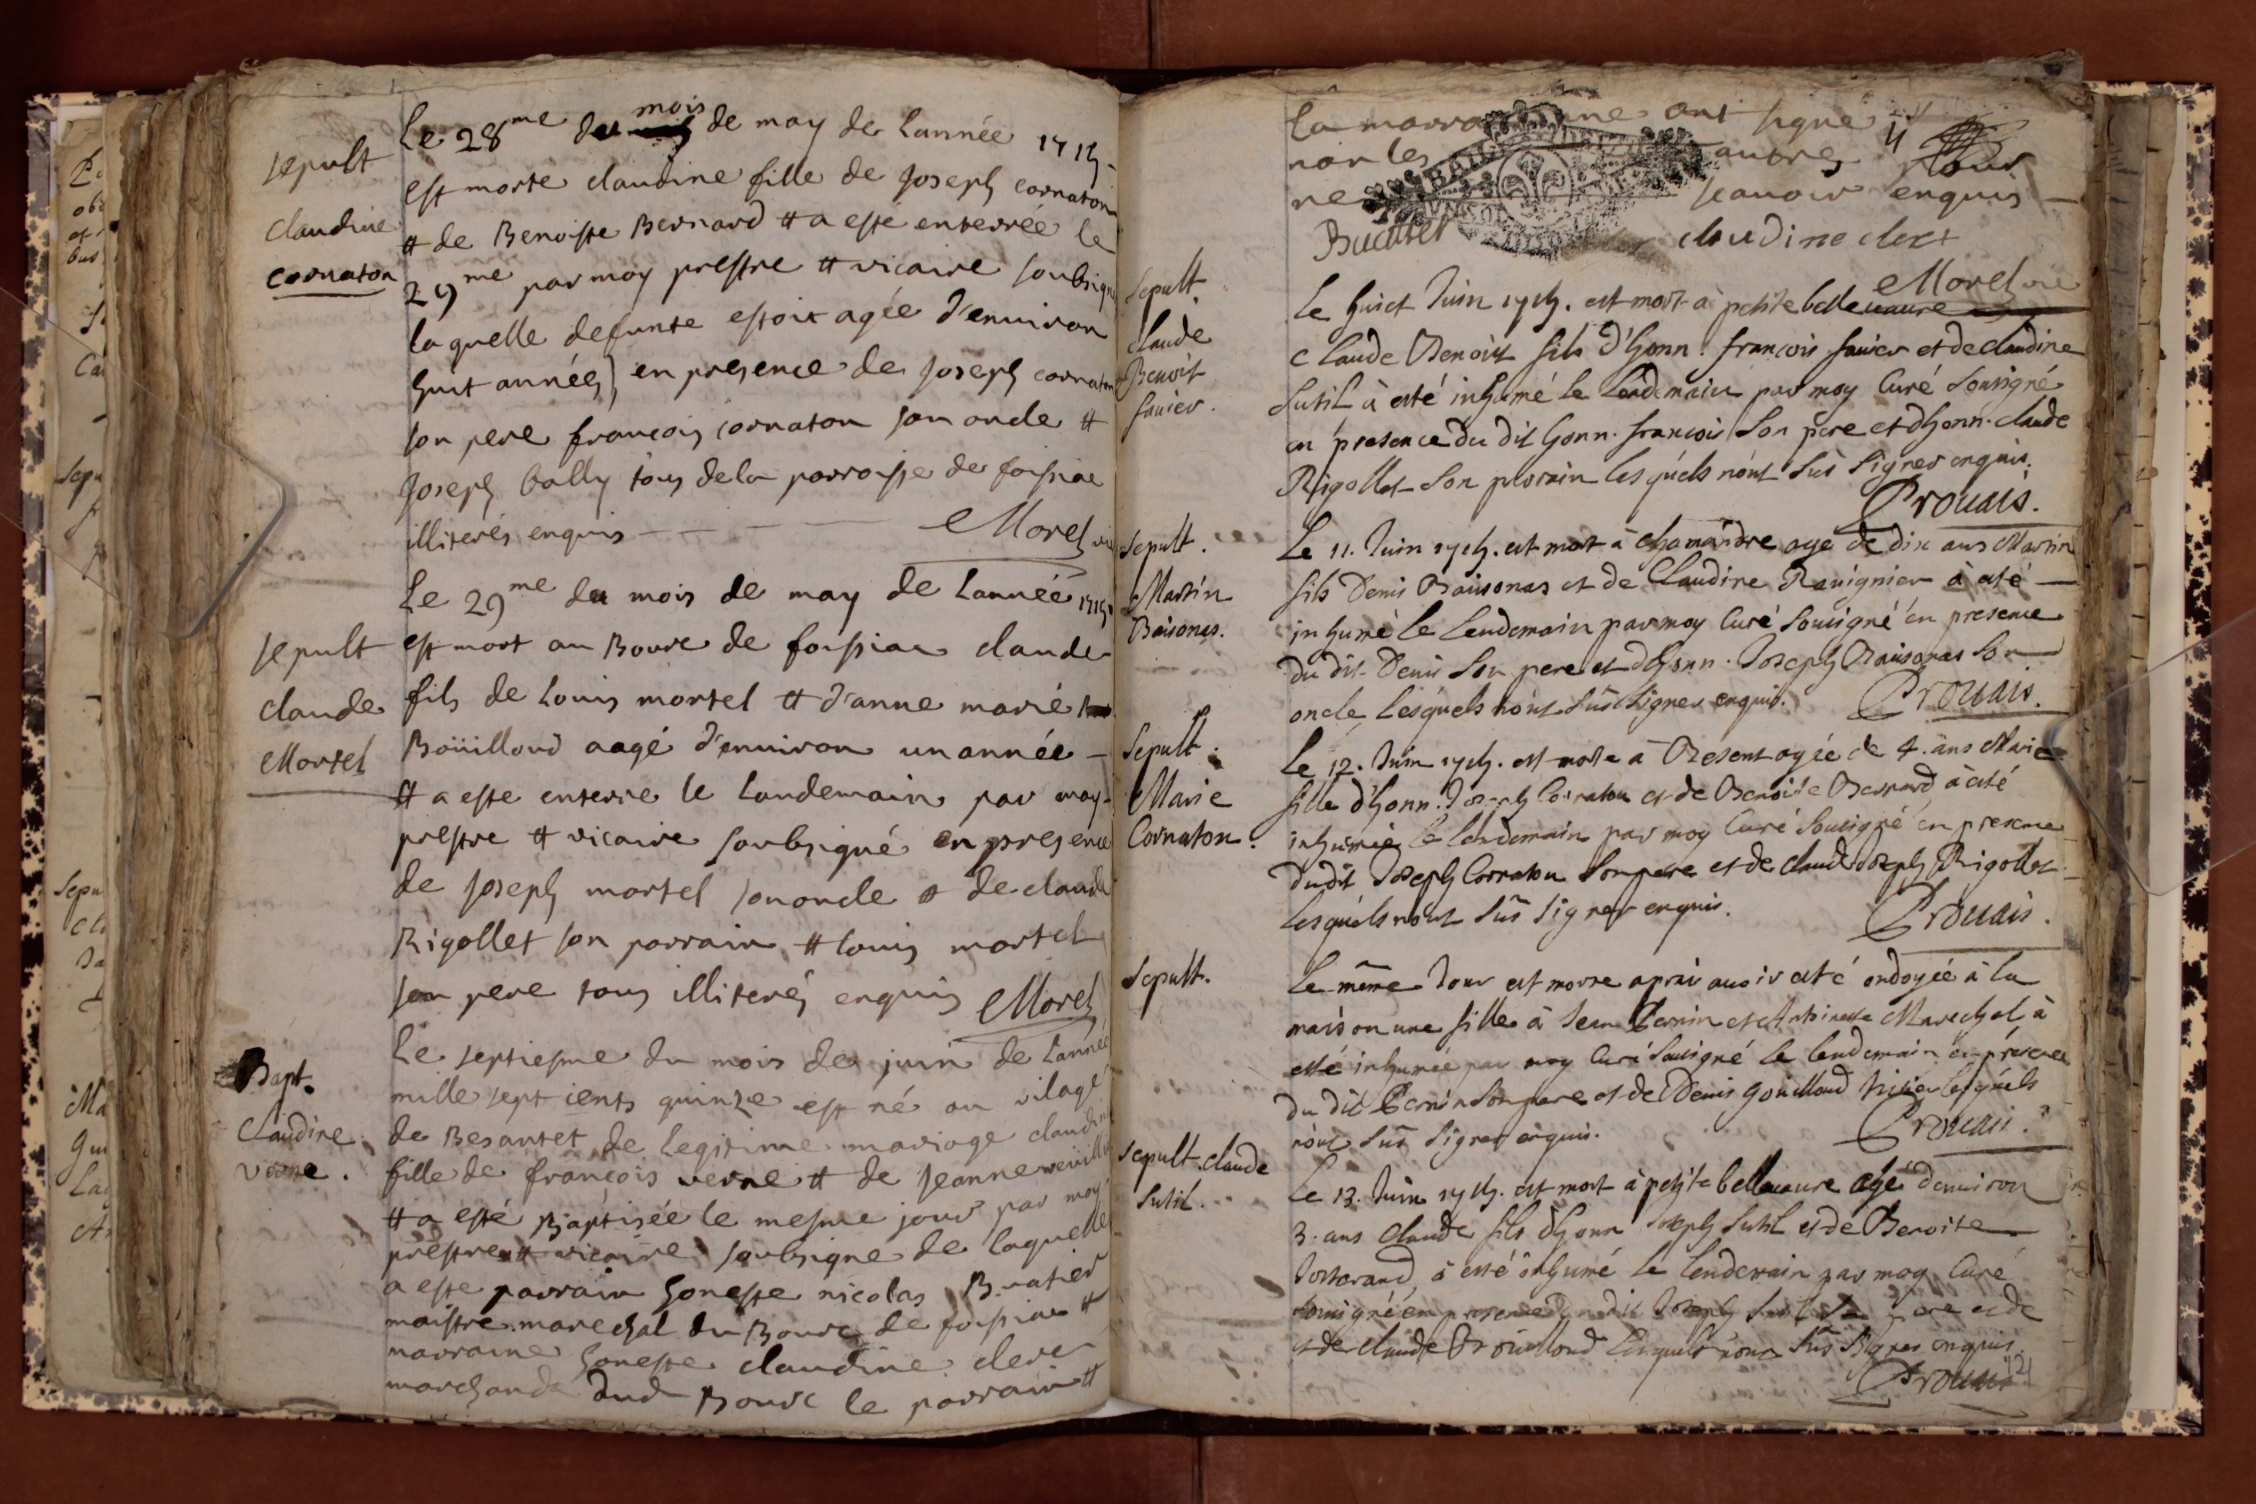 sepult
claudine
cornaton
Le 28me du mois de may de Lannée 1715
est morte claudine fille de Joseph cornaton
et de Benoiste Bernard et a esté enterrée le
29me par moy prestre et vicaire soubsigné
laquelle defunte estoit agée d'enuiron
huit années, en presence de Joseph cornaton
son pere françois cornaton son oncle et
Joseph bally tous de la parroisse de foissiac
illiterés enquis Morel vic
sepult
claude
Mortel
Le 29me du mois de may de Lannée 1715
est mort au Bourc de foissiac claude
fils de Louis mortel et d'anne marie
Boüilloud aagé d'enuiron un année
et a esté enterré le Landemain par moy
prestre et vicaire soubsigné en presence
de Joseph mortel son oncle et de claude
Rigollet son parrain et Louis mortel
son pere tous illiterés enquis Morel
Bapt.
Claudine
verne.
Le septiesme du mois de juin de Lannée
mille sept cents quinze est né au vilage
de Besantet de legitime mariage claudine
fille de françois verne et de Jeanne
et a esté Baptisée le mesme jour par moy
prestre et vicaire soubsigné de laquelle
a esté parrain honeste nicolas Buatier
maistre marechal du Bourc de foissiac et
marraine honeste claudine clerc
marchande dud Bourc le parrain et
la marraine ont signé
non les autres pour
ne scauoir enquis
Buatier claudine clerc
Morel vic
Sepult.
Claude
Benoit
fauier.
Le huict Juin 1715. est mort à petite bellevaure
Claude Benoist fils d'honn. francois fauier et de claudine
Sutil à esté inhumé le lendemain par moy Curé Sousigné
en presence du dit honn. francois Son père et d'honn. claude
Rigollet Son parrain lesquels n'ont Sûs Signer enquis.
Prouais.
Sepult.
Martin
Baisonas.
Le 11. Juin 1715. est mort à chamandre agé de dix ans Martin
fils Denis Baisonas et de Claudine Rauignier à esté
inhumé le lendemain par moy Curé Sousigné en presence
du dit Denis Son pere et d'honn. Joseph Baisonas Son
oncle lesquels n'ont Sûs Signer enquis. Prouais.
Sepult.
Marie
Cornaton.
Le 12. Juin 1715. est morte à Besent agée de 4. ans Marie
fille d'honn. Joseph Cornaton et de Benoite Bernard à esté
inhumée le lendemain par moy Curé Sousigné en presence
dudit Joseph Cornaton Son pere et de claude Joseph Rigollet
lesquels n'ont Sûs Signer enquis. Prouais.
Sepult.
Le même Jour est morte après auoir esté ondoyée à la
maison une fille à Jean Pernin et Anthoinette Marechal à
esté inhumée par moy Curé Sousigné le lendemain en présence
du dit Pernin Son pere et de Denis Gouilloud lesquels
n'ont Sûs Signer enquis. Prouais.
Sepult. claude
Sutil.
Le 13. Juin 1715. est mort à petite bellevaure agé d'enuiron
3. ans Claude fils d'honn Joseph Sutil et de Benoite
à esté inhumé le lendemain par moy Curé
Sousigné en presence du dit Joseph Sutil Son pere et de
et de claude Broüilloud lesquels n'ont Sûs Signer enquis.
Prouais